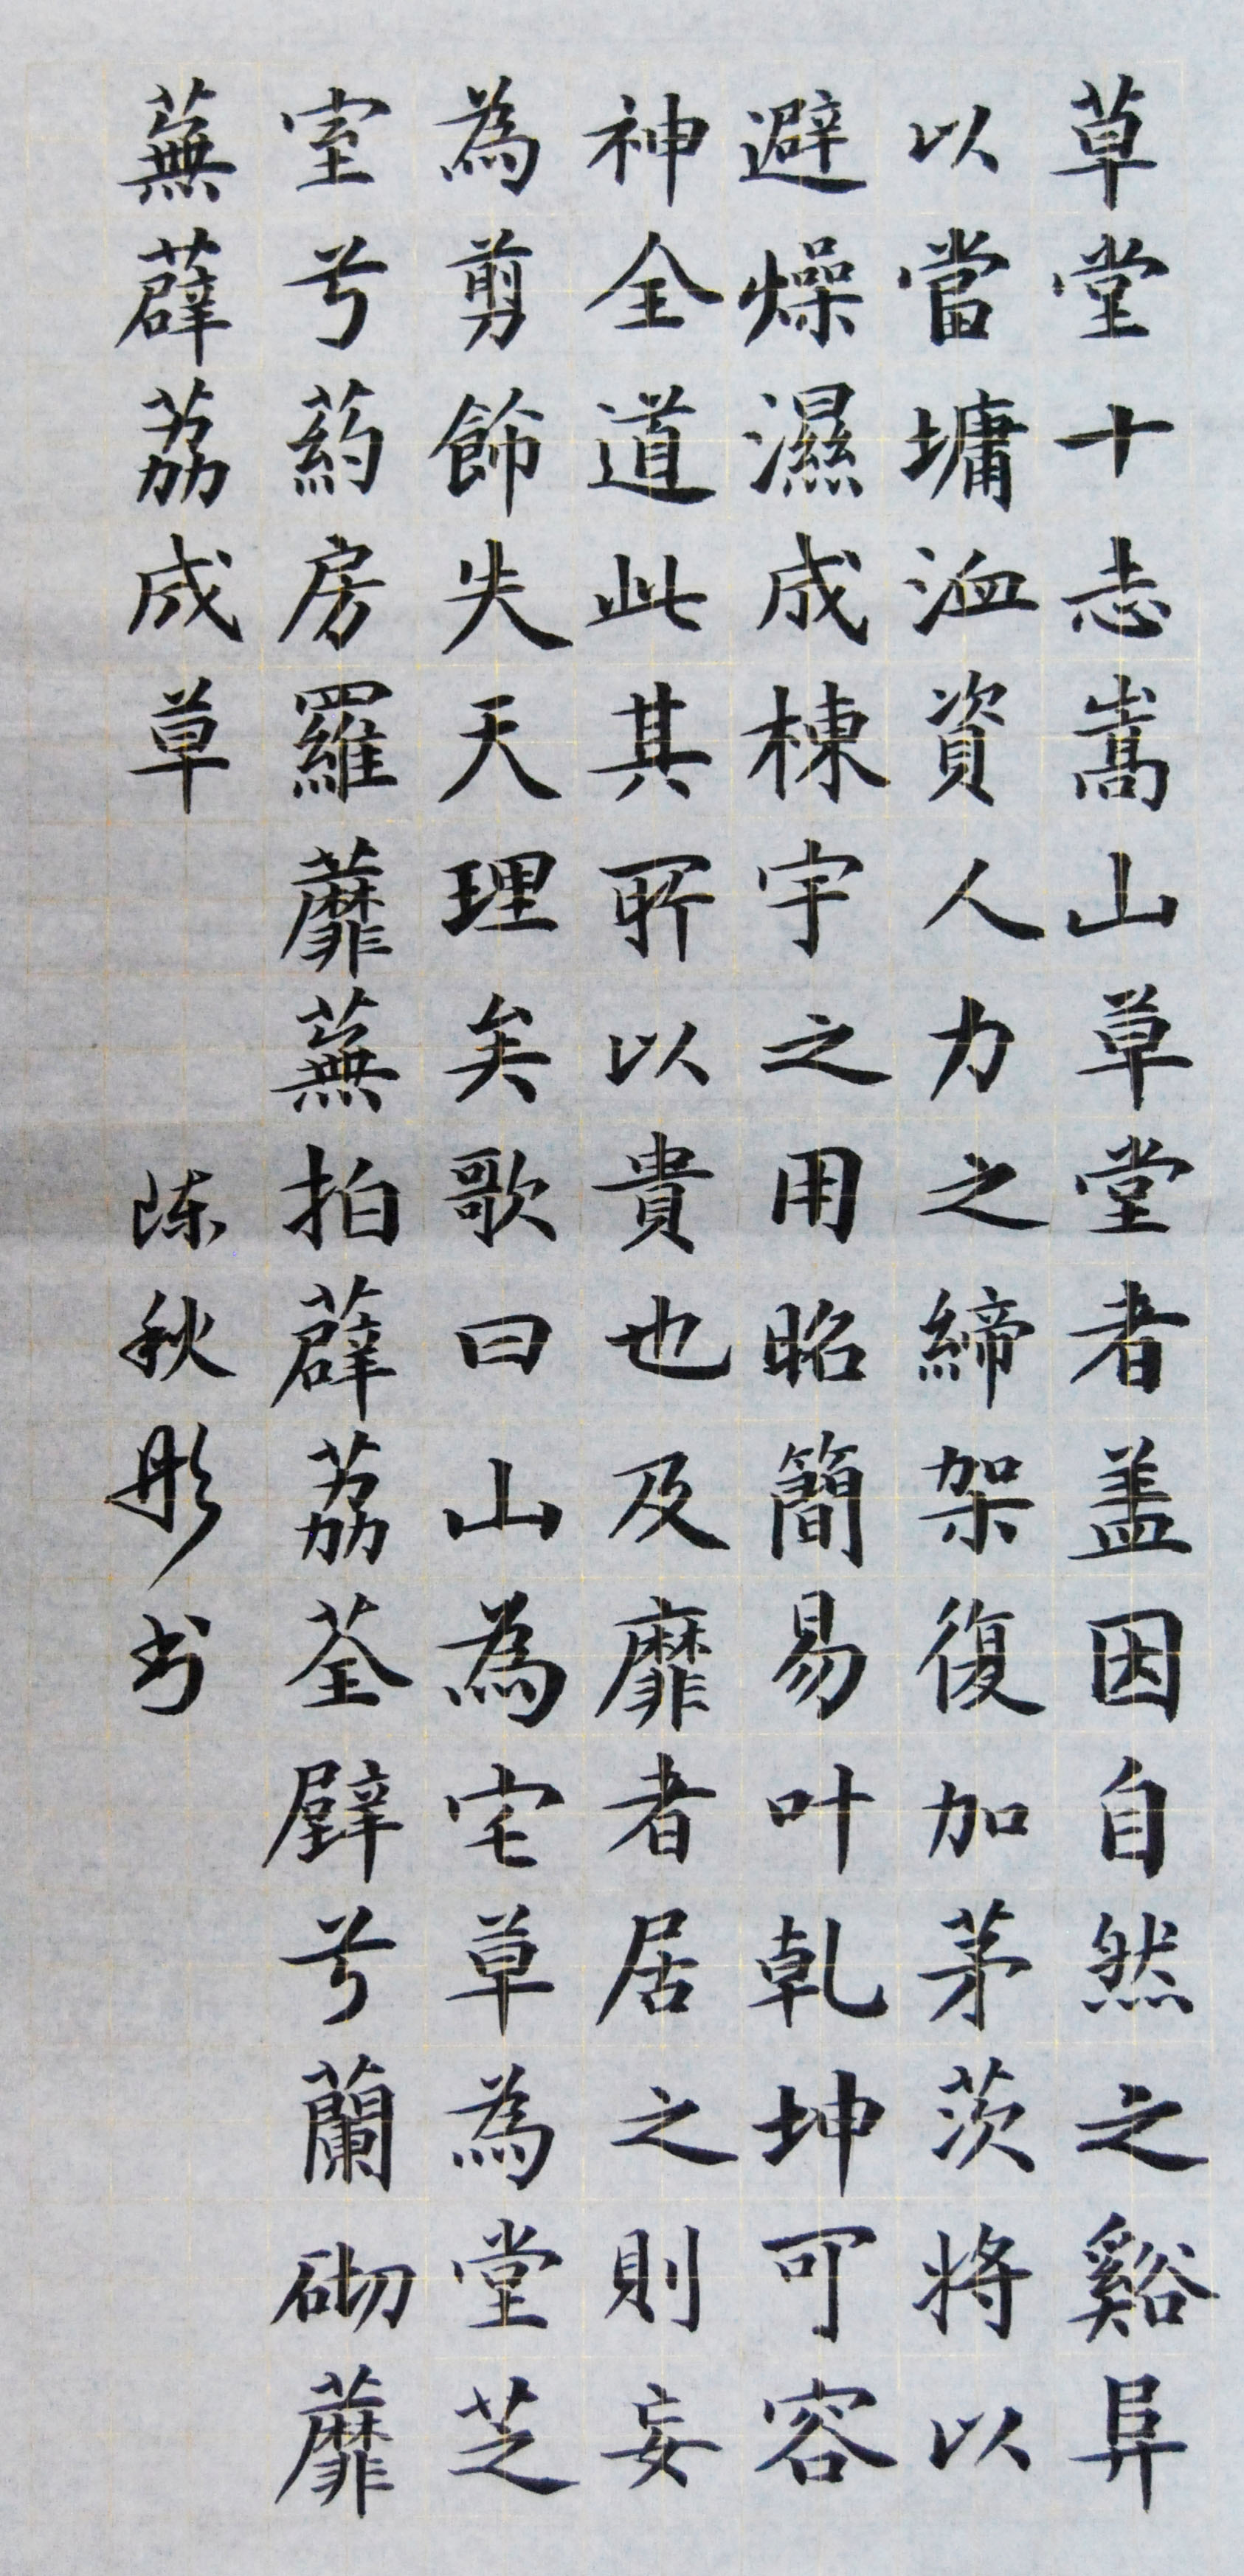 草堂十志嵩山草堂者盖因自然之谿阜
以當墉洫資人力之締架復加茅茨將以
避燥濕成棟宇之用昭簡易叶乹坤可容
神全道此其所以貴也及靡者居之則妄
為剪飾失天理矣歌曰山為宅草為堂芝
室兮葯房羅蘼蕪拍薜荔荃壁兮蘭砌蘼
蕪薜荔成草
陈秋彤书